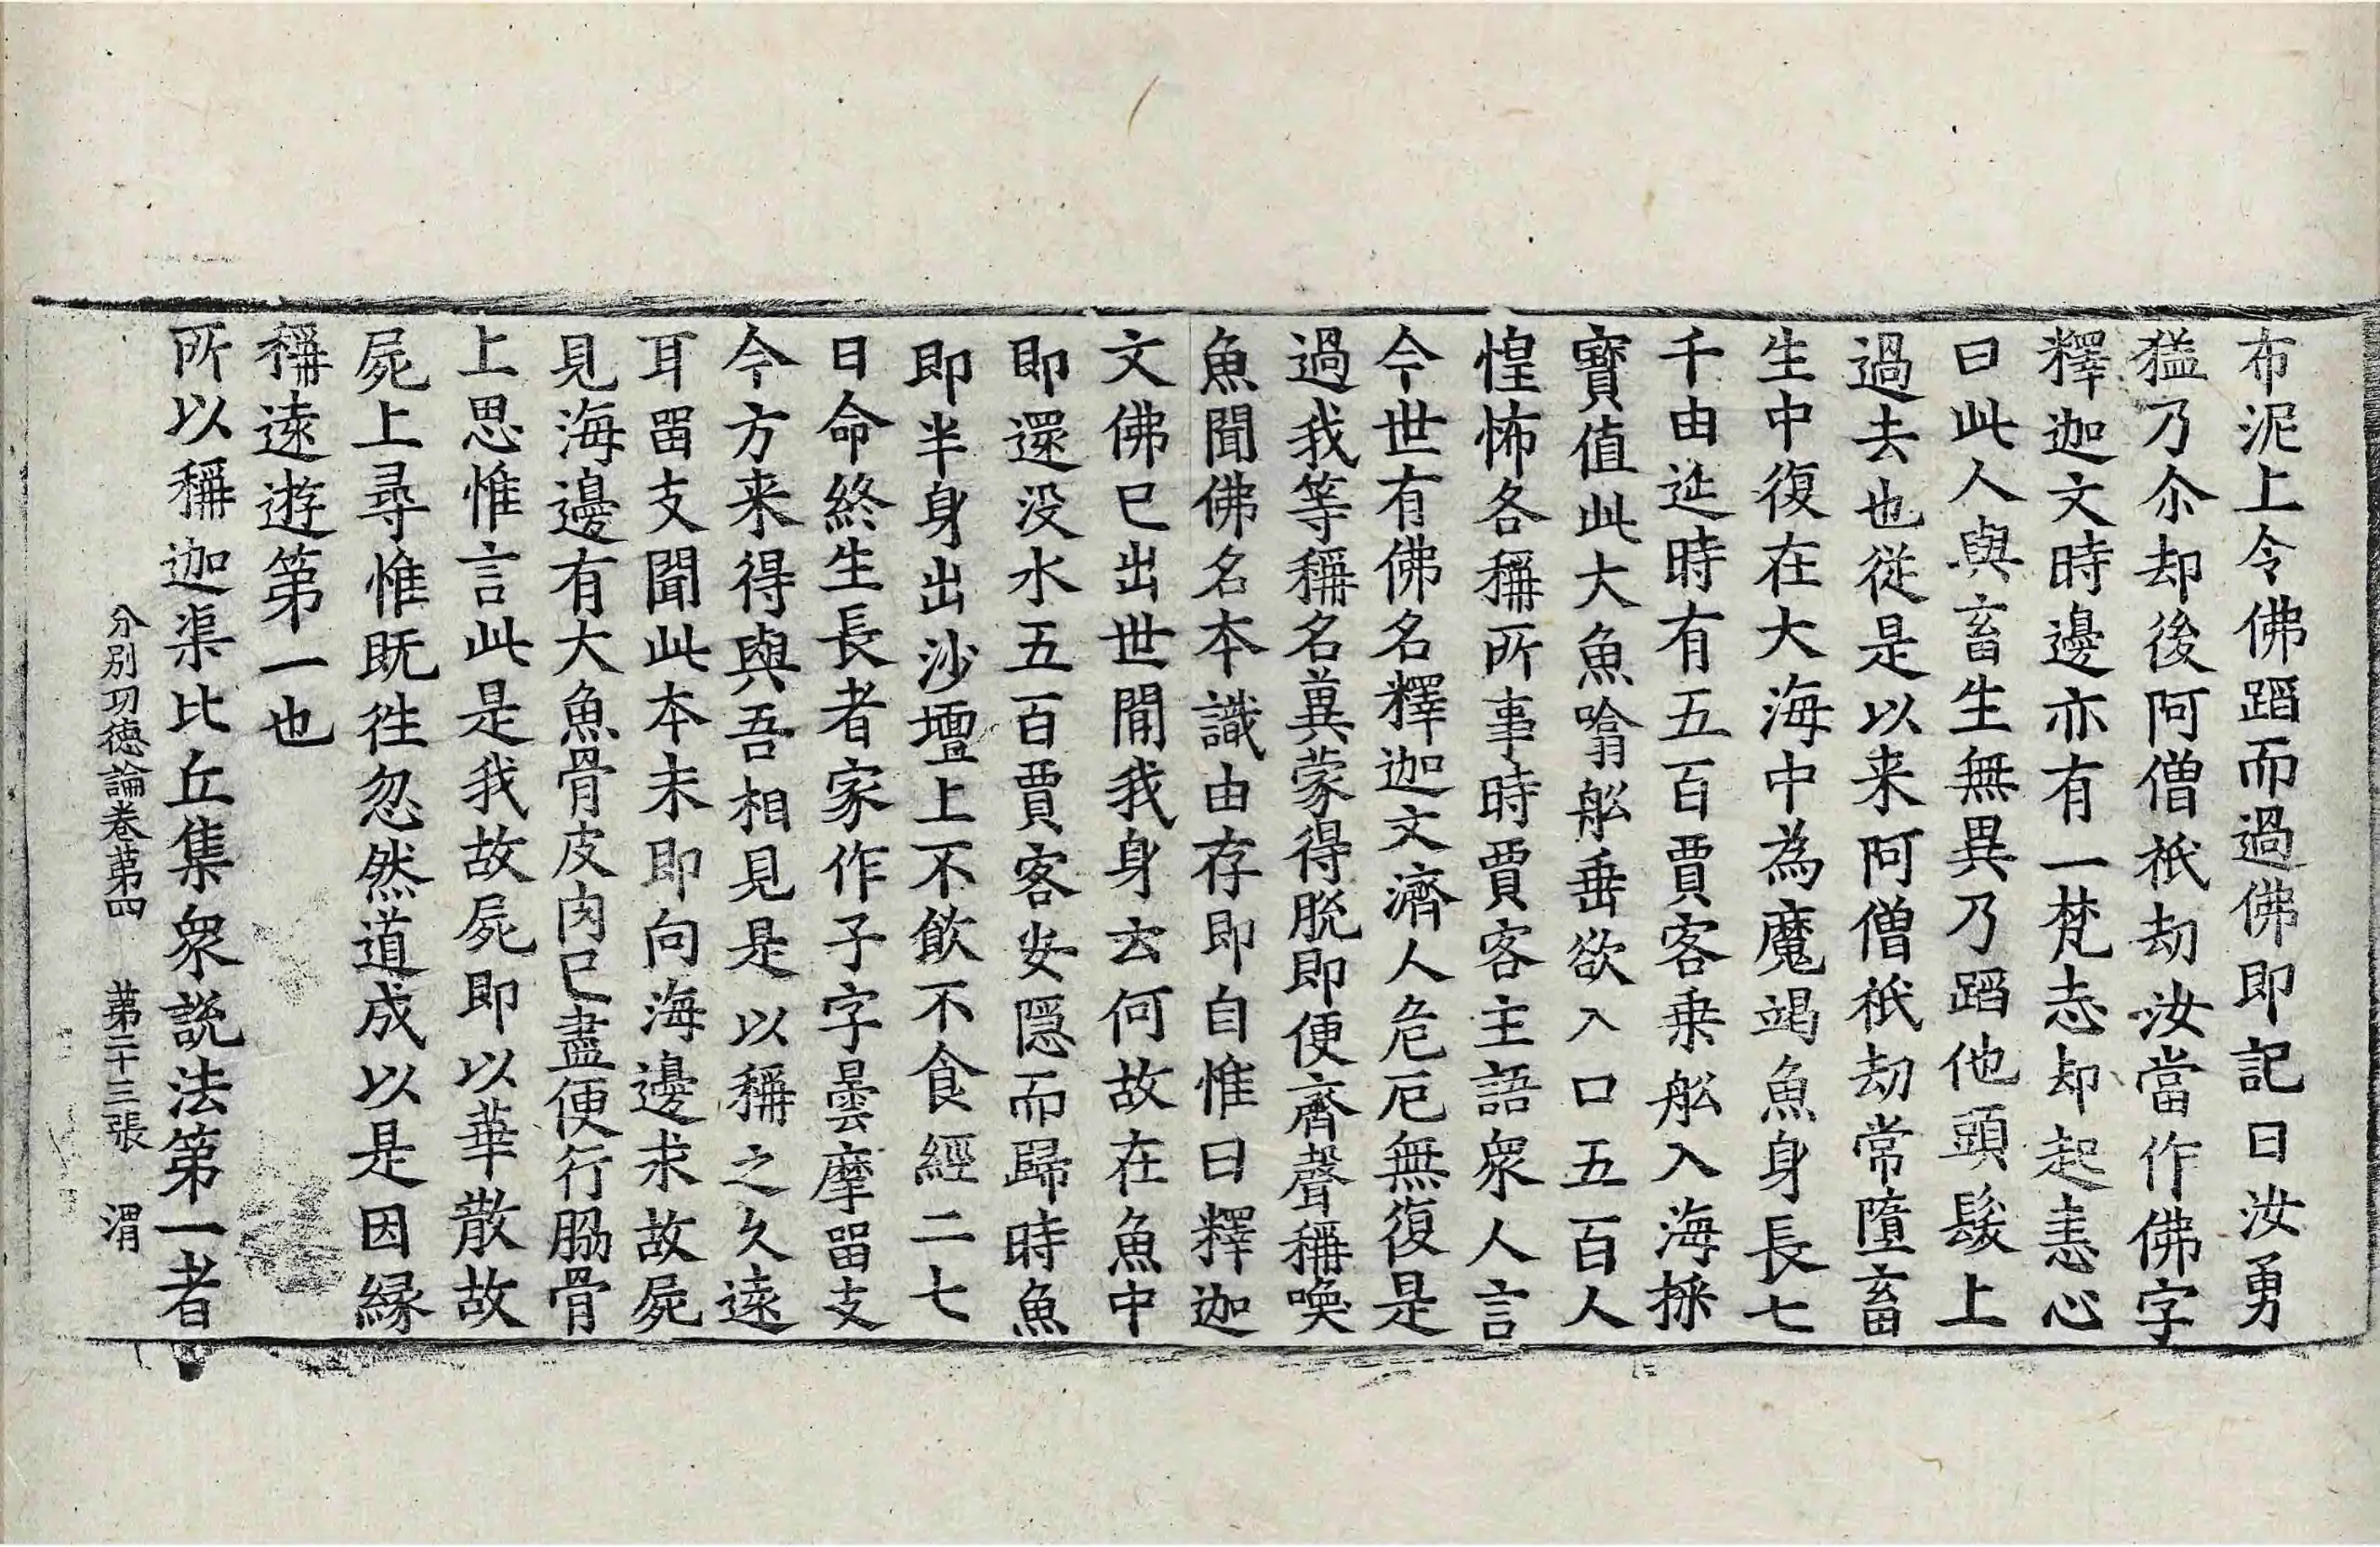 布泥上令佛蹈而過佛即記曰汝勇
猛乃尒却後阿僧祇劫汝當作佛字
釋迦文時邊亦有一梵志却起恚心
曰此人與畜生無異乃蹈他頭髮上
過去也從是以来阿僧祇劫常墮畜
生中復在大海中為魔竭魚身長七
千由延時有五百賈客乗舩入海採
寶值此大魚噏舩垂欲入口五百人
惶怖各稱所事時賈客主語衆人言
今世有佛名釋迦文濟人危厄無復是
過我等稱名兾蒙得脫即便齊聲稱喚
魚聞佛名本識由存即自惟曰釋迦
文佛已出世閒我身云何故在魚中
即還没水五百賈客安隱而歸時魚
即半身出沙壇上不飲不食經二七
日命終生長者家作子字曇摩留支
今方来得與吾相見是以稱之久遠
耳留支聞此本末即向海邊求故屍
見海邊有大魚骨皮肉已盡便行脇骨
上思惟言此是我故屍即以華散故
屍上尋惟既徃忽然道成以是因緣
稱遠遊第一也
所以稱迦渠比丘集衆說法第一者
分別功德論卷第四 第二十三張 渭